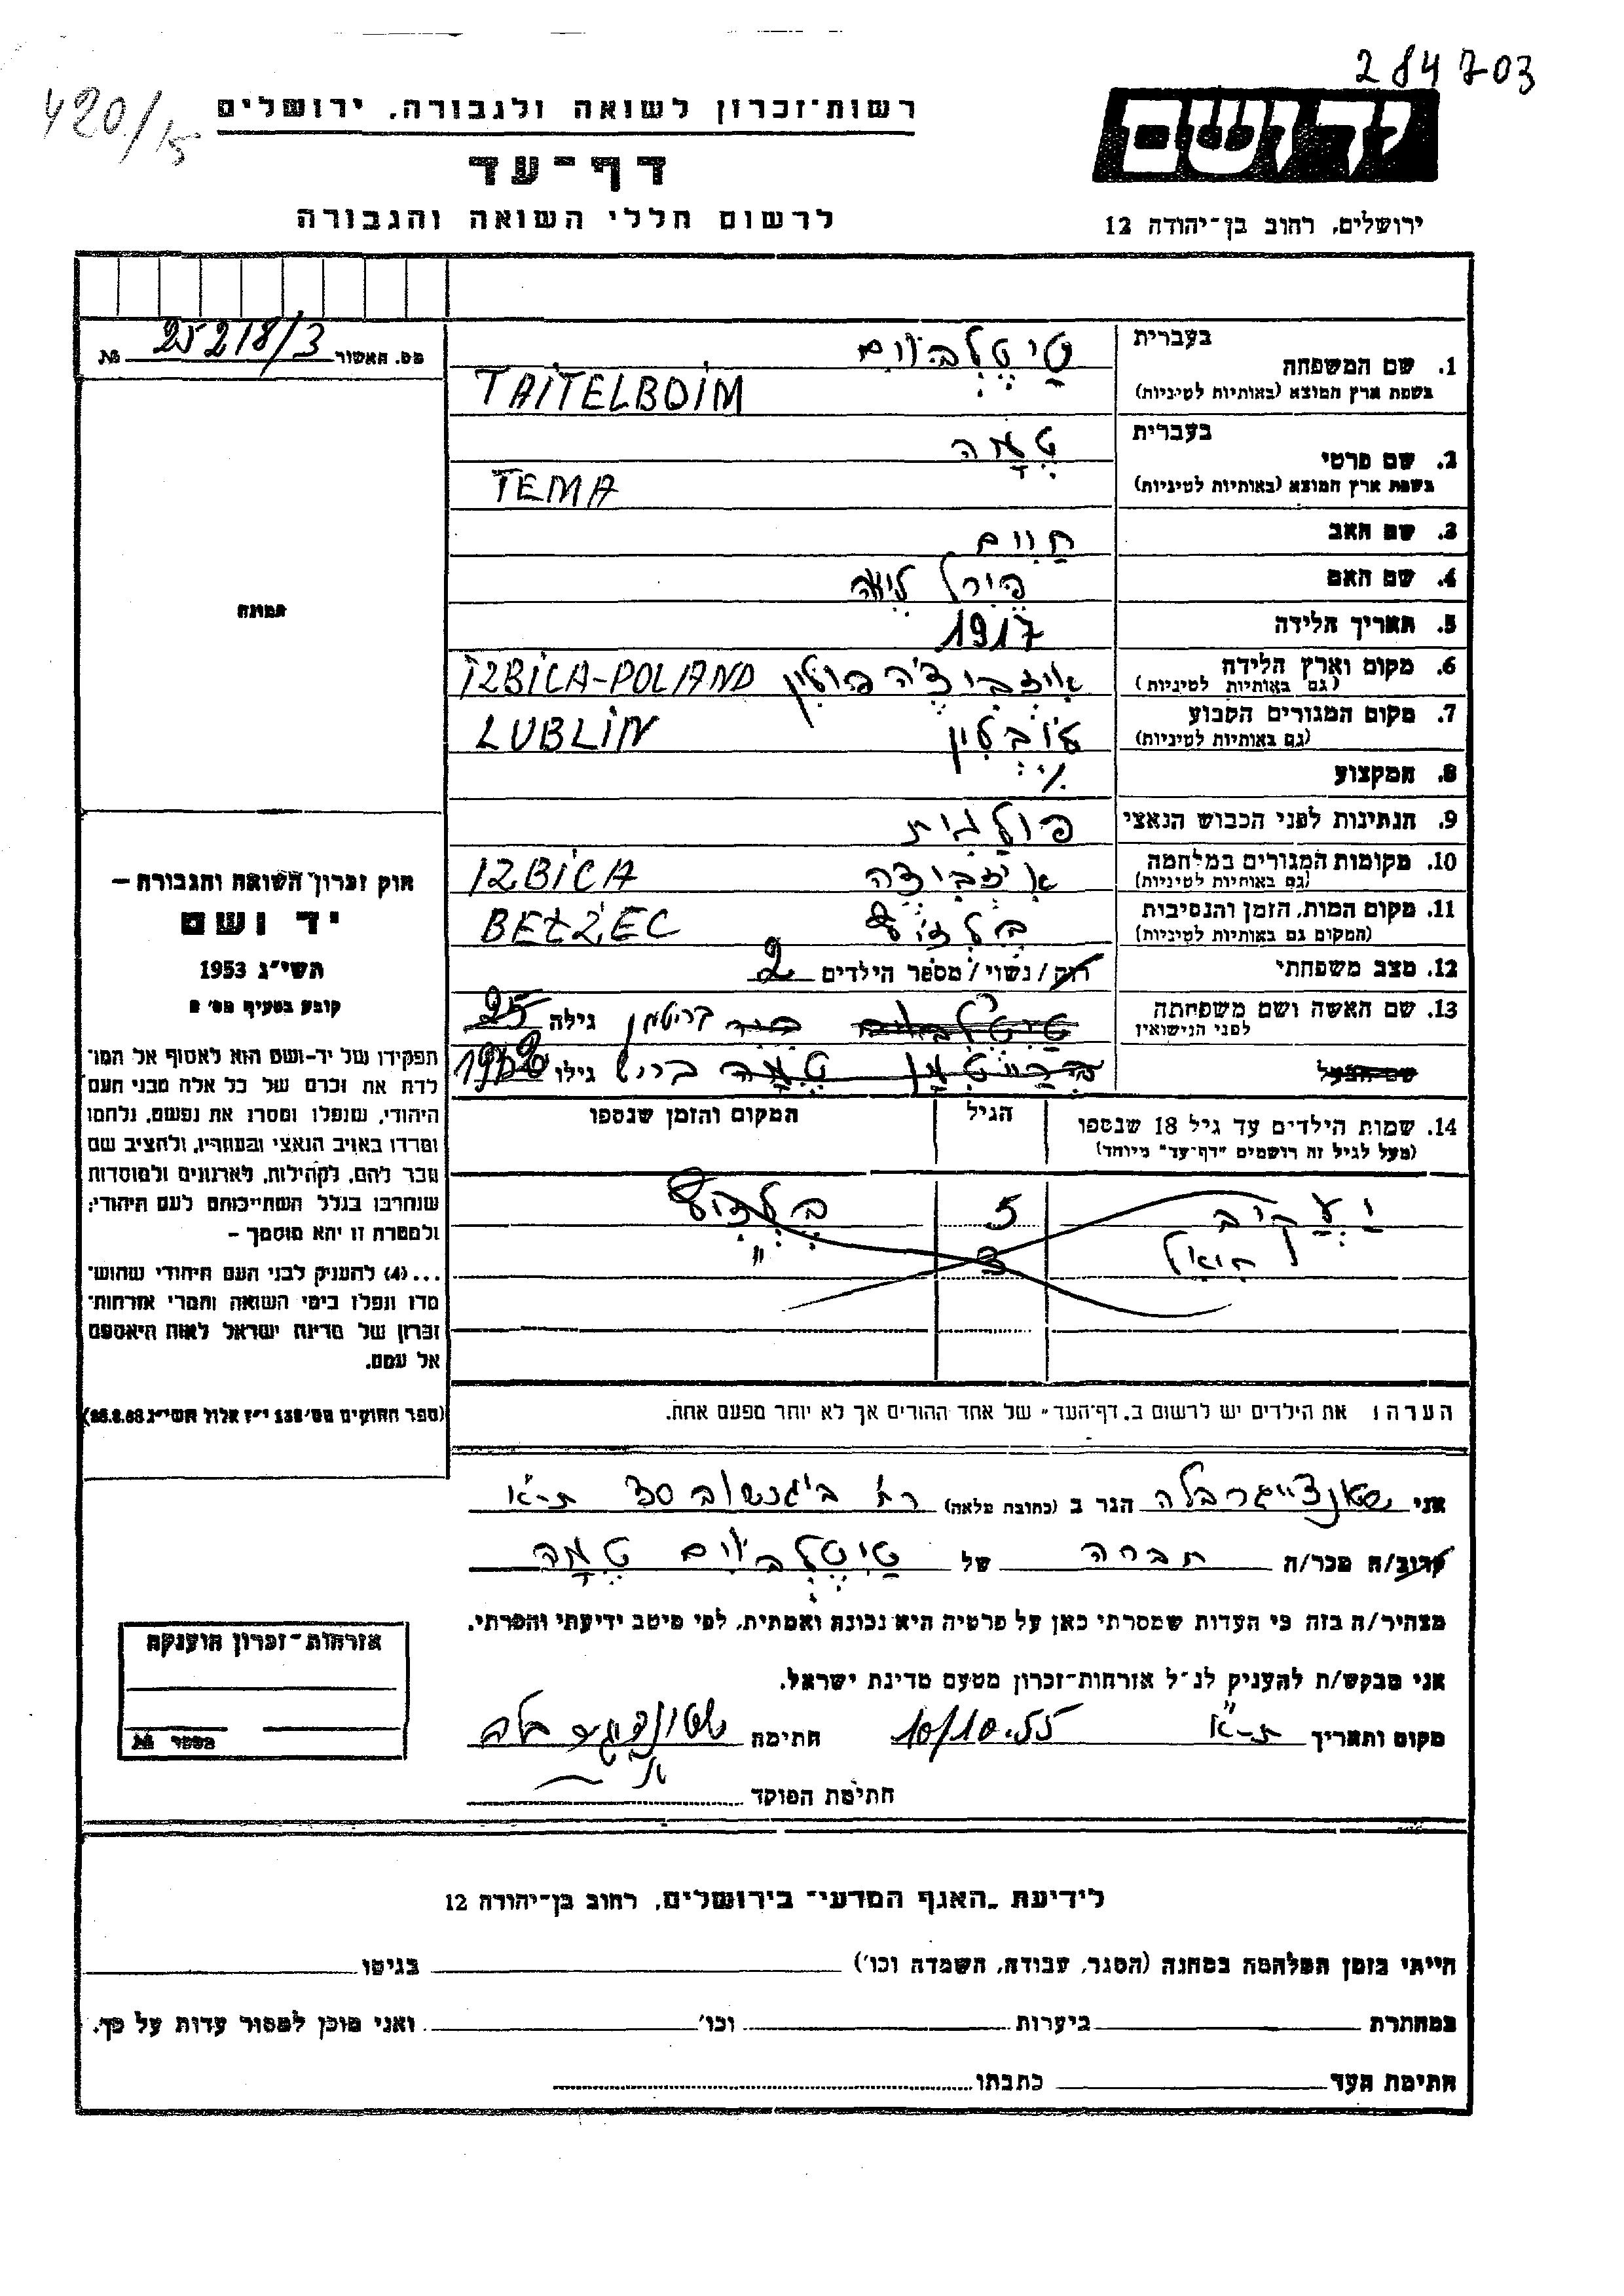 284703
420/15
יד ושם
רשות־זכרון לשואה ולגבורה. ירושלים
דף־עד
לרשום חללי השואה והגבורה
ירושלים, רחוב בן־יהודה 12
מס. האשור 25218/3 №
תמונה
בעברית
1. שם המשפחה טַיטֶלְבּוֹים
בשפת ארץ המוצא (באותיות לטיניות) TAITELBOIM
בעברית
2. שם פרטי טֶמָה
בשפת ארץ המוצא (באותיות לטיניות) TEMA
3. שם האב חַיִים
4. שם האם פֵּירל לֵיאָה
5. תאריך הלידה 1917
6. מקום וארץ הלידה אִיזבִּיצֶ'ה פּוֹלִין IZBICA-POLAND
(גם באותיות לטיניות)
7. מקום המגורים הקבוע לוּבְּלִין LUBLIN
(גם באותיות לטיניות)
8. המקצוע ./.
9. הנתינות לפני הכבוש הנאצי פולנית
10. מקומות המגורים במלחמה איזבִּיצֶה IZBICA
(גם באותיות לטיניות)
11. מקום המות, הזמן והנסיבות בֶּלְזֶ'ץ BEŁŻEC
(המקום גם באותיות לטיניות)
12. מצב משפחתי רוק / נשוי / מספר הילדים 2
13. שם האשה ושם משפחתה גילה 25
לפני הנישואין
שם הבעל גילו
14. שמות הילדים עד גיל 18 שנספו הגיל המקום והזמן שנספו
(מעל לגיל זה רושמים "דף־עד" מיוחד)
יַעֲקוֹב 5 בֶּלְזֶץ
3 "
הערה: את הילדים יש לרשום ב„דף־העד" של אחד ההורים אך לא יותר מפעם אחת.
חוק זכרון השואה והגבורה —
יד ושם
תשי"ג 1953
קובע בסעיף מס' 2
תפקידו של יד־ושם הוא לאסוף אל המו־
לדת את זכרם של כל אלה מבני העם
היהודי, שנפלו ומסרו את נפשם, נלחמו
ומרדו באויב הנאצי ובעוזריו, ולהציב שם
וזכר להם, לקהילות, לארגונים ולמוסדות
שנחרבו בגלל השתייכותם לעם היהודי;
ולמטרה זו יהא מוסמך —
...(4) להעניק לבני העם היהודי שהוש־
מדו ונפלו בימי השואה והמרי אזרחות־
זכרון של מדינת ישראל לאות היאספם
אל עמם.
(ספר החוקים מס' 132 י"ז אלול תשי"ג 28.8.53)
אני הגר ב (כתובת מלאה) רח' 30 ת-א
קרוב/ה מכר/ה חברה של טַיטֶלְבּוֹים טֶמָה
מצהיר/ה בזה כי העדות שמסרתי כאן על פרטיה היא נכונה ואמתית, לפי מיטב ידיעתי והכרתי.
אני מבקש/ת להעניק לנ"ל אזרחות־זכרון מטעם מדינת ישראל.
מקום ותאריך ת-א 10/10.55 חתימה
חתימת הפוקד
אזרחות־זכרון הוענקה
מספר №
לידיעת „האגף המדעי" בירושלים, רחוב בן־יהודה 12
הייתי בזמן המלחמה במחנה (הסגר, עבודה, השמדה וכו') בגיטו
במחתרת ביערות וכו' ואני מוכן למסור עדות על כך.
חתימת העד כתבתו